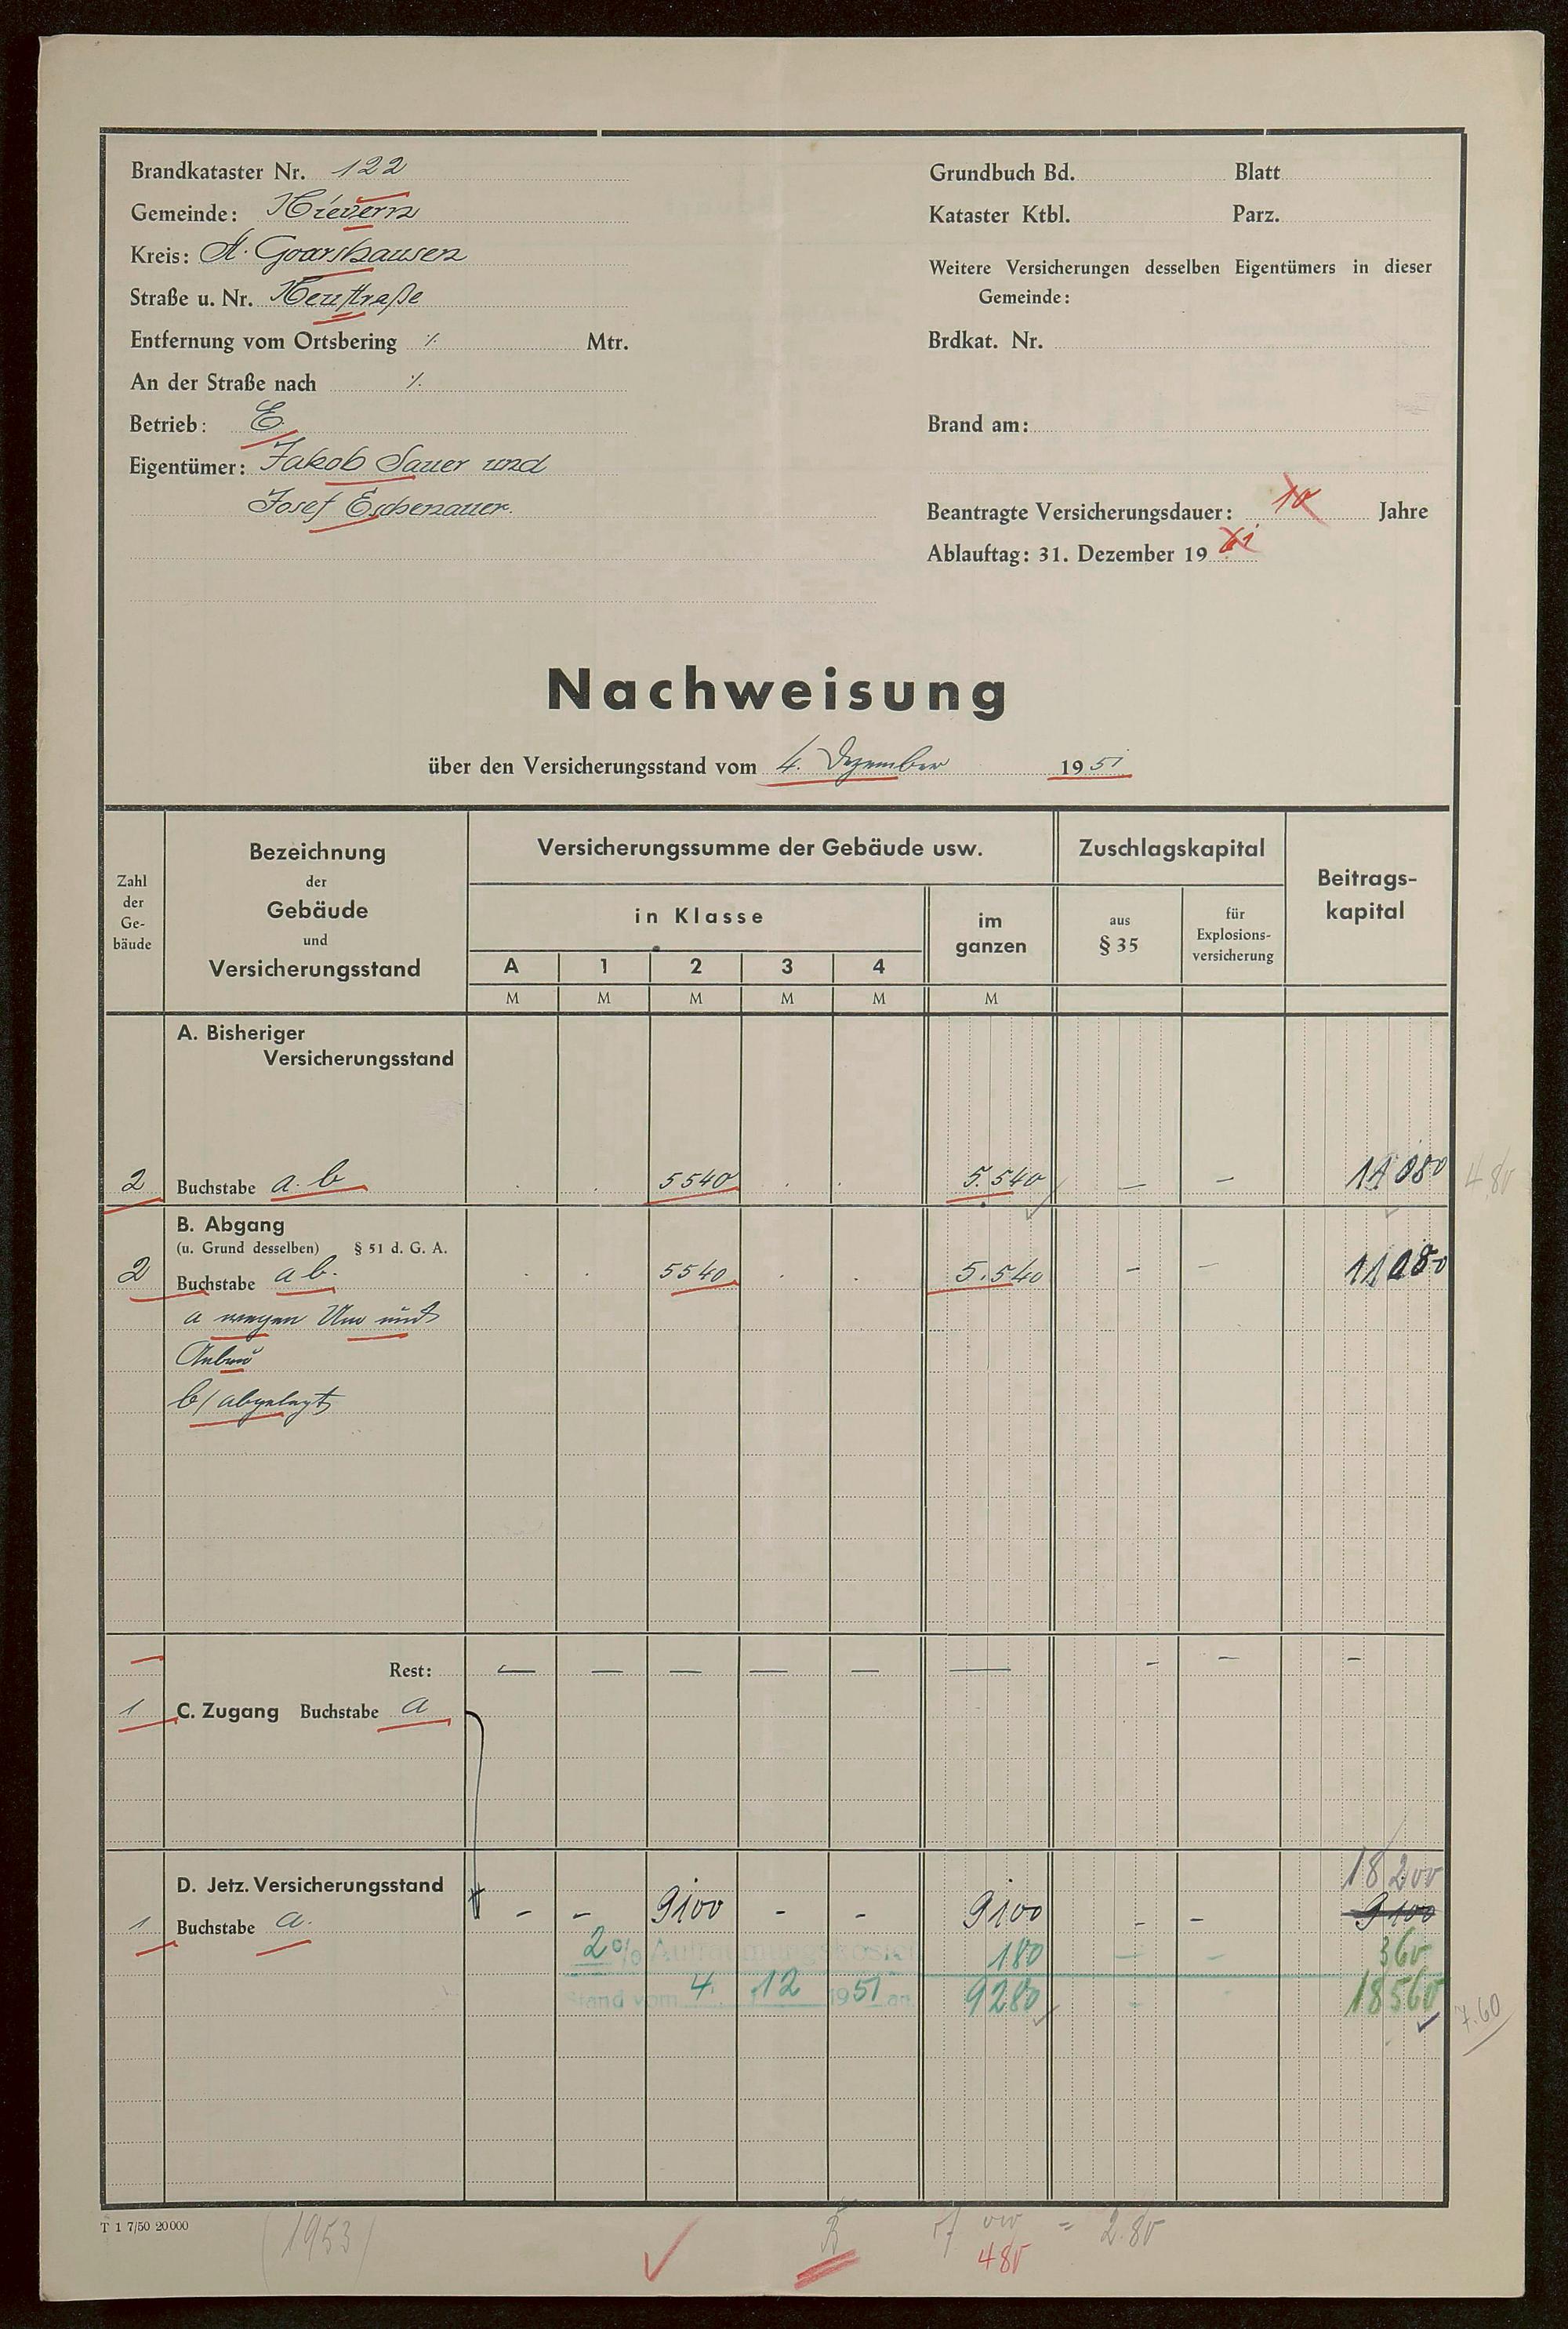 Brandkataster Nr. 122
Gemeinde: Nievern
Kreis: St. Goarshausen
Straße u. Nr. Neustraße
Entfernung vom Ortsbering ·/. Mtr.
An der Straße nach ·/.
Betrieb: E.
Eigentümer: Jakob Sauer und
Josef Eschenauer.
Grundbuch Bd. Blatt
Kataster Ktbl. Parz.
Weitere Versicherungen desselben Eigentümers in dieser
Gemeinde:
Brdkat. Nr.
Brand am:
Beantragte Versicherungsdauer: 10 Jahre
Ablauftag: 31. Dezember 19 61
Nachweisung
über den Versicherungsstand vom 4. Dezember 1951
Zahl der Ge- bäude
Bezeichnung der Gebäude und Versicherungsstand
Versicherungssumme der Gebäude usw.
in Klasse
A 1 2 3 4
M M M M M
im ganzen
M
Zuschlagskapital
aus § 35
für Explosions- versicherung
Beitrags- kapital
A. Bisheriger
Versicherungsstand
2 Buchstabe a. b 5540 5.540 — — 11 080 4 80
B. Abgang
(u. Grund desselben) § 51 d. G. A.
2 Buchstabe a b. 5540 5.540 — — 11 080
a wegen Um und
Anbau
b/ abgelegt
Rest: — — — — — — - - -
1 C. Zugang Buchstabe a
18 200
D. Jetz. Versicherungsstand
1 Buchstabe a. - - 9100 - - 9100 - - 9 100
2% Aufräumungskosten 180 — - 360
Stand vom 4. 12 1951 an 9280 - - 18 560 7.60
T 1 7/50 20 000
(1953) = 2.80
480